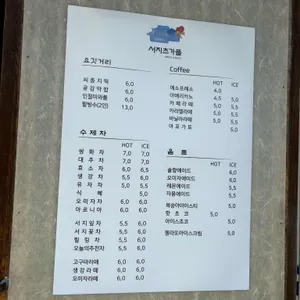 서지츠가플
요깃거리
씨종지떡 6,0
곶감약밥 6,0
인절미와플 6,0
팥빙수(2인) 13,0
Coffee
HOT ICE
에스프레소 4,0
아메리카노 4,5 5,0
카페라떼 5,0 5,5
카라멜라떼 5,0 5,5
바닐라라떼 5,0 5,5
아포가토 5,5
수제차
HOT ICE
쌍화차 7,0 7,0
대추차 7,0 7,0
효소차 6,0 6,5
생강차 5,5 6,0
유자차 5,0 5,5
식혜 5,0
오미자차 6,0 6,0
마르니아 6,0 6,0
서지잎차 5,5 6,0
서지꽃차 5,5 6,0
힐링차 5,5 6,0
오늘의주전자 5,5 6,0
고구마라떼 6,0
생강라떼 6,0
오미자라떼 6,0
음료
HOT ICE
솔향에이드 6,0
오미자에이드 6,0
레몬에이드 5,5
자몽에이드 5,5
복숭아아이스티 5,0
핫초코 5,0
아이스초코 5,5
젤라또아이스크림 5,0